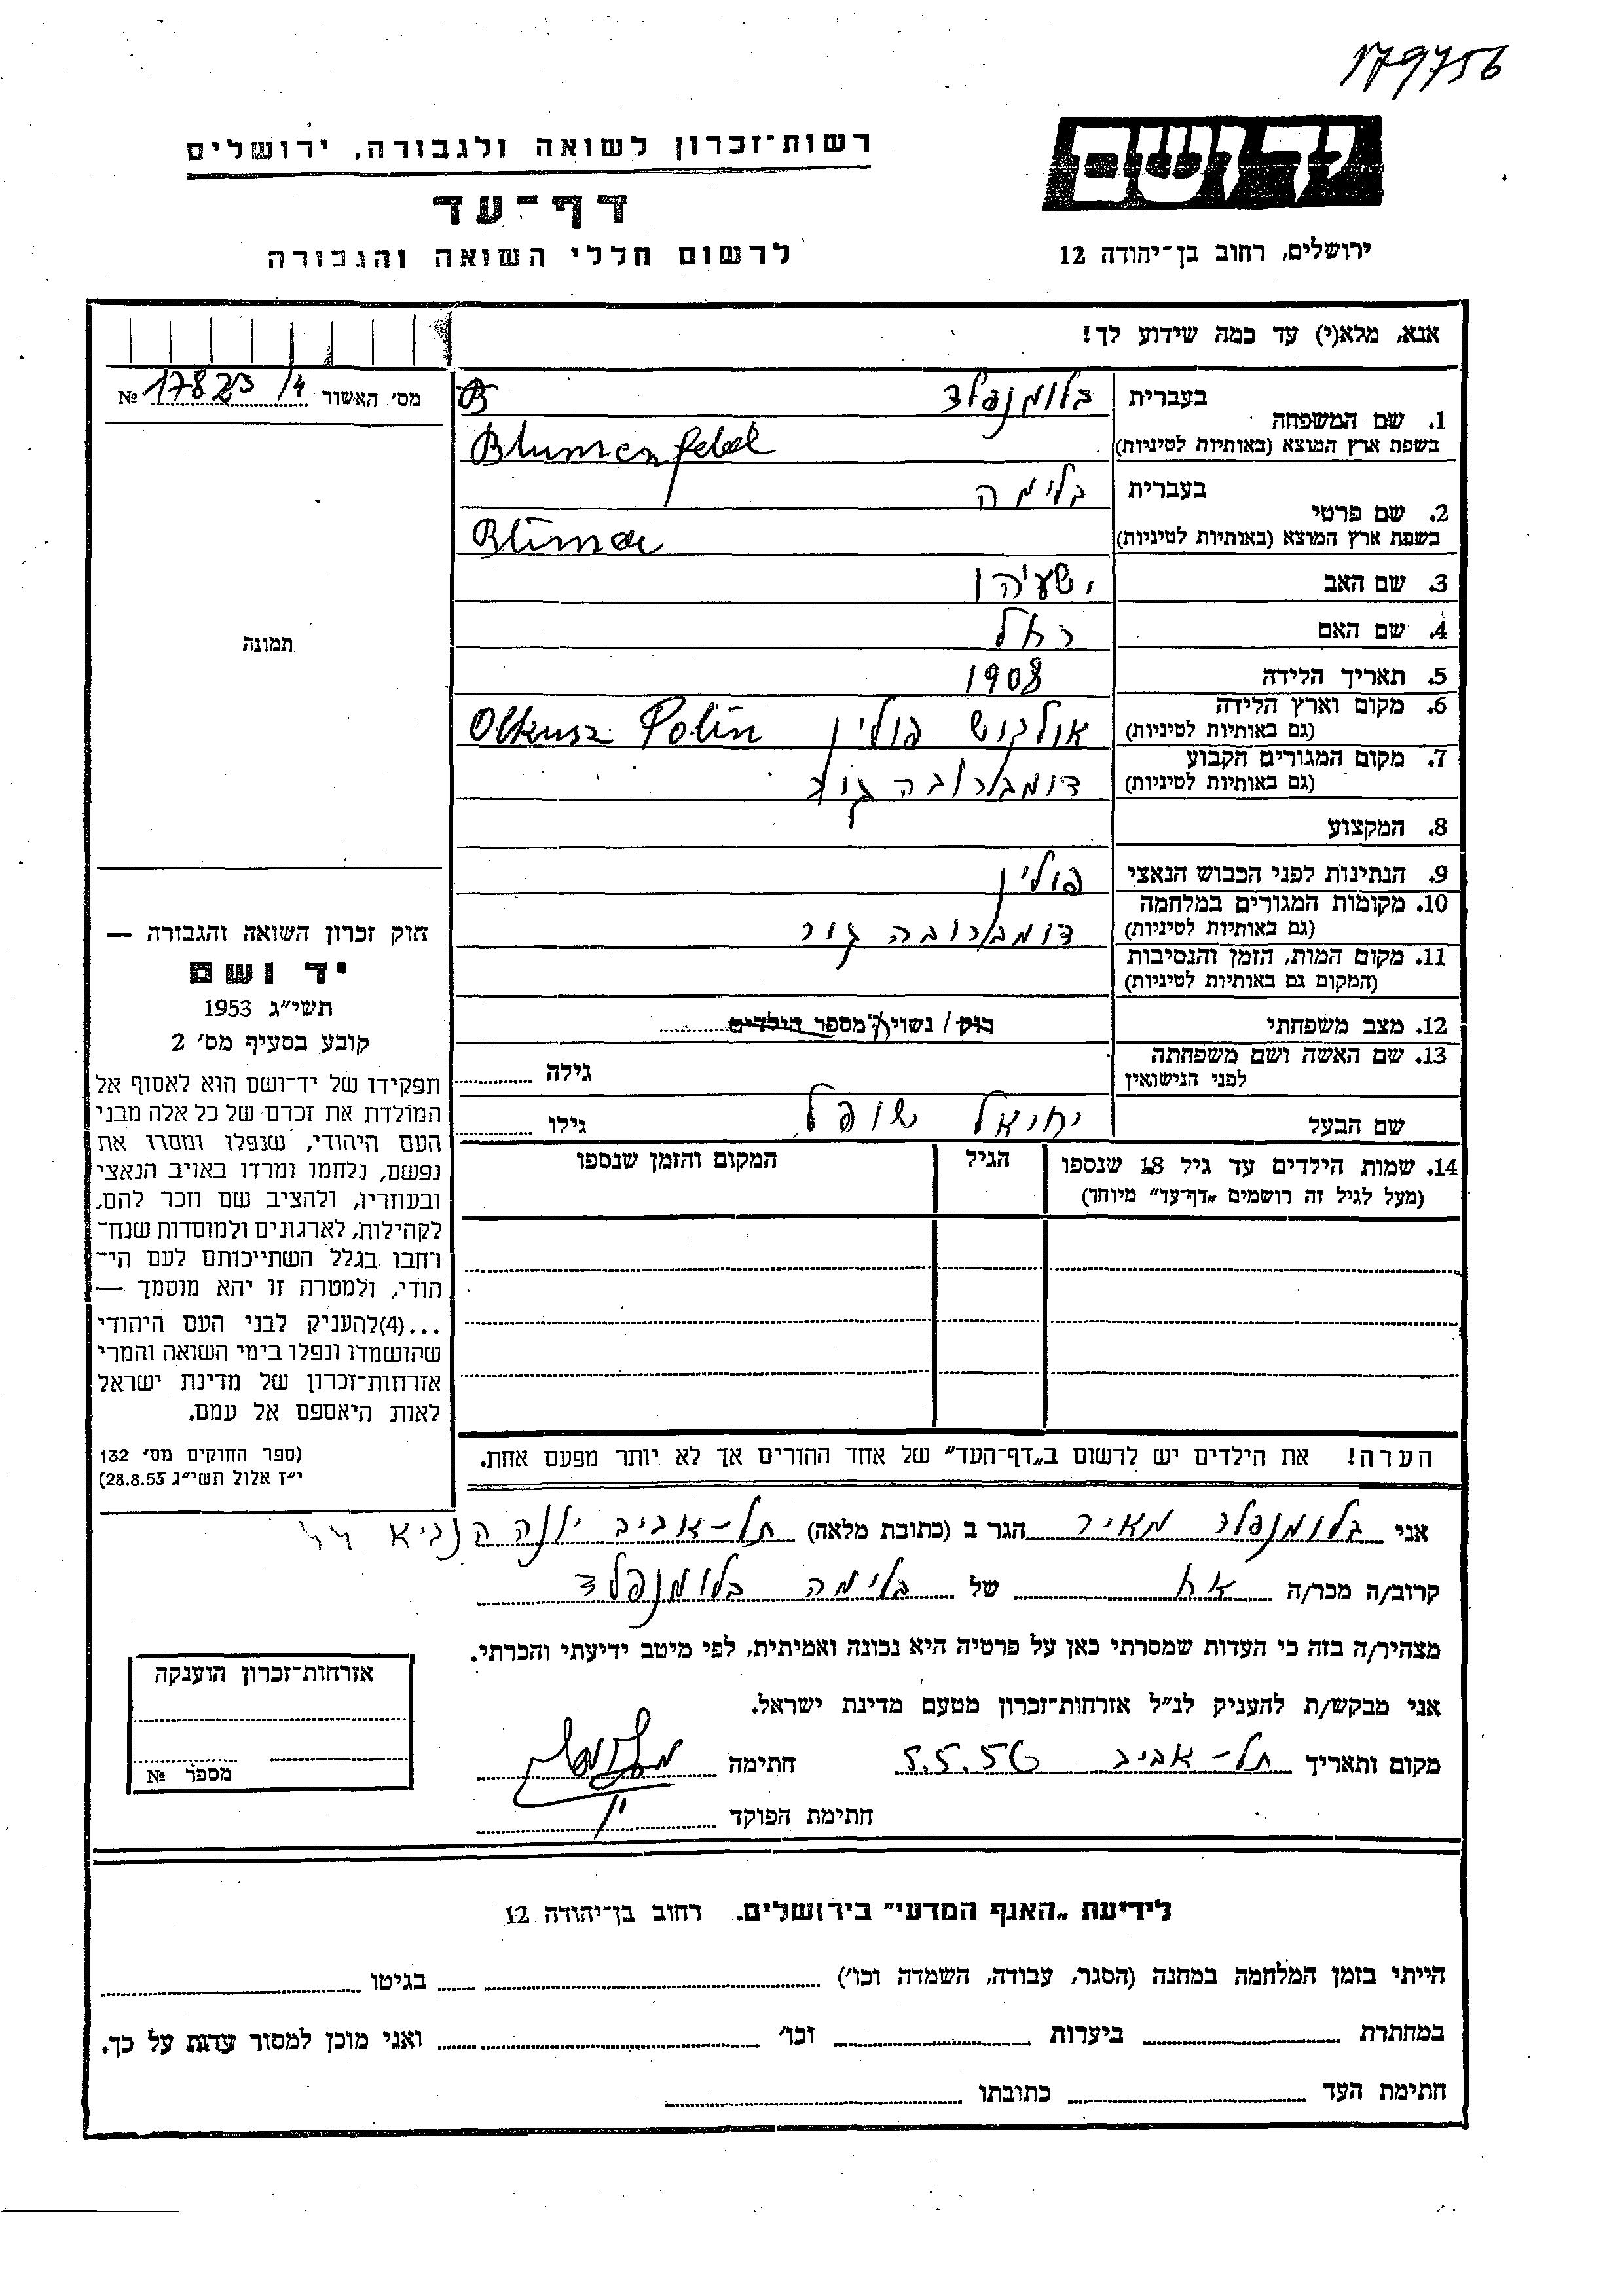 179756
יד ושם
ירושלים, רחוב בן־יהודה 12
רשות־זכרון לשואה ולגבורה, ירושלים
דף־עד
לרשום חללי השואה והגבורה
אנא, מלא(י) עד כמה שידוע לך!
מס׳ האשור 17823/4 №
1. שם המשפחה
בעברית בלומנפלד
בשפת ארץ המוצא (באותיות לטיניות) Blumenfeld
2. שם פרטי
בעברית בלימה
בשפת ארץ המוצא (באותיות לטיניות) Blima
3. שם האב ישעיהו
4. שם האם רחל
5. תאריך הלידה 1908
6. מקום וארץ הלידה
(גם באותיות לטיניות) אולקוש פולין Olkusz Polin
7. מקום המגורים הקבוע
(גם באותיות לטיניות) דומברובה גור
8. המקצוע
9. הנתינות לפני הכבוש הנאצי פולין
10. מקומות המגורים במלחמה
(גם באותיות לטיניות) דומברובה גור
11. מקום המות, הזמן והנסיבות
(המקום גם באותיות לטיניות)
12. מצב משפחתי רוק / נשוי/ה מספר הילדים
13. שם האשה ושם משפחתה
לפני הנישואין גילה
שם הבעל יחיאל שופל גילו
14. שמות הילדים עד גיל 18 שנספו
(מעל לגיל זה רושמים „דף־עד״ מיוחד)
הגיל
המקום והזמן שנספו
הערה! את הילדים יש לרשום ב„דף־העד״ של אחד ההורים אך לא יותר מפעם אחת.
תמונה
חוק זכרון השואה והגבורה —
יד ושם
תשי״ג 1953
קובע בסעיף מס׳ 2
תפקידו של יד־ושם הוא לאסוף אל
המולדת את זכרם של כל אלה מבני
העם היהודי, שנפלו ומסרו את
נפשם, נלחמו ומרדו באויב הנאצי
ובעוזריו, ולהציב שם וזכר להם,
לקהילות, לארגונים ולמוסדות שנח־
רחבו בגלל השתייכותם לעם הי־
הודי, ולמטרה זו יהא מוסמך —
...(4)להעניק לבני העם היהודי
שהושמדו ונפלו בימי השואה והמרי
אזרחות־זכרון של מדינת ישראל
לאות היאספם אל עמם.
(ספר החוקים מס׳ 132
י״ז אלול תשי״ג 28.8.53)
אני בלומנפלד מאיר הגר ב (כתובת מלאה) תל-אביב יונה הנביא 44
קרוב/ה מכר/ה אח של בלימה בלומנפלד
מצהיר/ה בזה כי העדות שמסרתי כאן על פרטיה היא נכונה ואמיתית, לפי מיטב ידיעתי והכרתי.
אני מבקש/ת להעניק לנ״ל אזרחות־זכרון מטעם מדינת ישראל.
מקום ותאריך תל-אביב 5.5.56 חתימה
חתימת הפוקד
אזרחות־זכרון הוענקה
מספר №
לידיעת „האגף המדעי״ בירושלים. רחוב בן־יהודה 12
הייתי בזמן המלחמה במחנה (הסגר, עבודה, השמדה וכו׳) בגיטו
במחתרת ביערות וכו׳ ואני מוכן למסור עדות על כך.
חתימת העד כתובתו